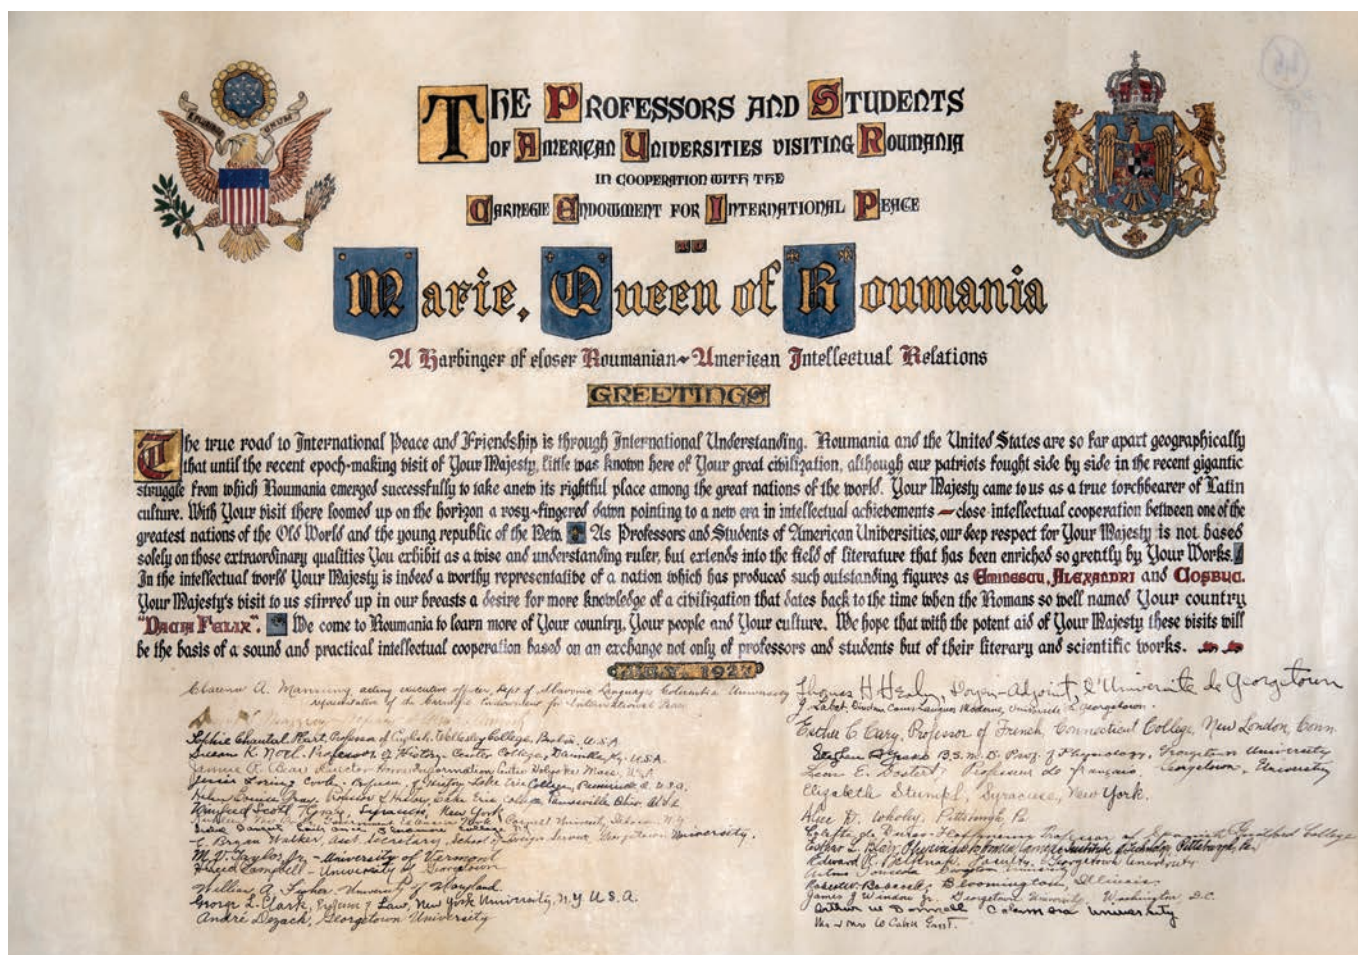 E PLURIBUS UNUM
THE PROFESSORS AND STUDENTS
OF AMERICAN UNIVERSITIES VISITING ROUMANIA
IN COOPERATION WITH THE
CARNEGIE ENDOWMENT FOR INTERNATIONAL PEACE
TO
Marie, Queen of Roumania
A Harbinger of closer Roumanian-American Intellectual Relations
GREETINGS
The true road to International Peace and Friendship is through International Understanding. Roumania and the United States are so far apart geographically
that until the recent epoch-making visit of Your Majesty, little was known here of Your great civilization, although our patriots fought side by side in the recent gigantic
struggle from which Roumania emerged successfully to take anew its rightful place among the great nations of the world. Your Majesty came to us as a true torchbearer of Latin
culture. With Your visit there loomed up on the horizon a rosy-fingered dawn pointing to a new era in intellectual achievements — close intellectual cooperation between one of the
greatest nations of the Old World and the young republic of the New. As Professors and Students of American Universities, our deep respect for Your Majesty is not based
solely on those extraordinary qualities You exhibit as a wise and understanding ruler, but extends into the field of literature that has been enriched so greatly by Your Works.
In the intellectual world Your Majesty is indeed a worthy representative of a nation which has produced such outstanding figures as EMINESCU, ALEXANDRI and COSBUC.
Your Majesty's visit to us stirred up in our breasts a desire for more knowledge of a civilization that dates back to the time when the Romans so well named Your country
"DACIA FELIX". We come to Roumania to learn more of Your country, Your people and Your culture. We hope that with the potent aid of Your Majesty these visits will
be the basis of a sound and practical intellectual cooperation based on an exchange not only of professors and students but of their literary and scientific works.
JULY 1927
Clarence A. Manning, acting executive officer, Dept of Slavonic Languages Columbia University
representative of the Carnegie Endowment for International Peace
Sophie Chantal Hart, Professor of English, Wellesley College, Boston, U.S.A.
Susan K. Noel. Professor of History Centre College, Danville, Ky. U.S.A.
Information Mass. U.S.A.
College, U.S.A.
Helen Louise Gray, Professor of History, Lake Erie College, Painesville Ohio,
Winifred Scott Syracuse, New York
Cornell University, Ithaca, N.Y.
E. Bryan Walker, Asst Secretary, School of Foreign Service, Georgetown University.
M. D. Taylor, Jr. - University of Vermont
Campbell - University of Georgetown
William A. Fisher University of Maryland
George L. Clark, Professor of Law, New York University, N.Y. U.S.A.
André Dezach, Georgetown University
Thomas H. Healy, Doyen-Adjoint, l'Université de Georgetown
Langues Modernes, Université de Georgetown.
Esther C. Cary, Professor of French, Connecticut College, New London, Conn.
B.S. M.D. Prof. of Physiology, Georgetown University
Leon E. Dostert, Professeur de français, Georgetown University
Elizabeth Stumpf, Syracuse, New York.
Alice D. Pittsburgh, Pa.
Professor of Spanish, Guilford College
Esther L. Blair, Institute of Technology, Pittsburgh, Pa.
Edward Faculty, Georgetown University
Georgetown University
Babcock, Bloomington, Illinois
James J. Window Jr. Georgetown University, Washington, D.C.
Arthur W. Columbia University
Mr & Mrs W Cabell